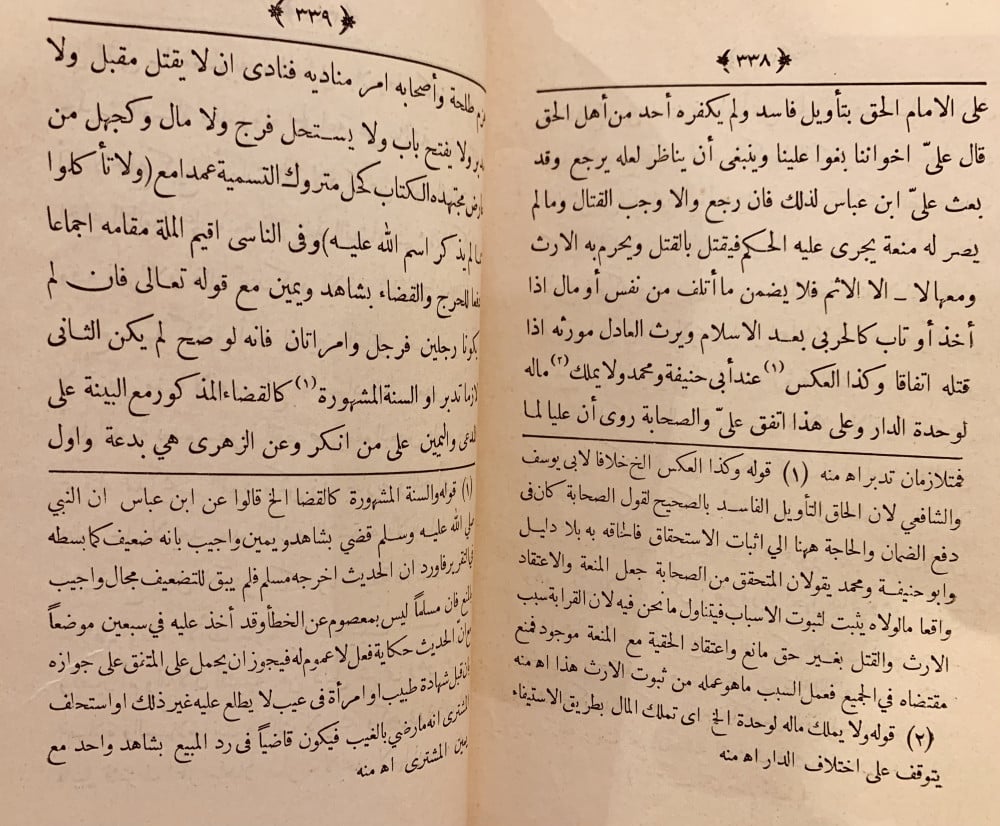 ﴿ ٣٣٨ ﴾
على الامام الحق بتأويل فاسد ولم يكفره أحد من أهل الحق
قال علىّ اخواننا بغوا علينا وينبغى أن يناظر لعله يرجع وقد
بعث علىّ ابن عباس لذلك فان رجع والا وجب القتال ومالم
يصر له منعة يجرى عليه الحكم فيقتل بالقتل ويحرم به الارث
ومعها لا ـ الا الاثم فلا يضمن ما أتلف من نفس أو مال اذا
أخذ أو تاب كالحربى بعد الاسلام ويرث العادل مورثه اذا
قتله اتفاقا وكذا العكس (١) عند أبى حنيفة ومحمد ولا يملك (٢) ماله
لوحدة الدار وعلى هذا اتفق علىّ والصحابة روى أن عليا لما
فمتلازمان تدبر اه منه (١) قوله وكذا العكس الخ خلافا لابى يوسف
والشافعي لان الحاق التأويل الفاسد بالصحيح لقول الصحابة كان فى
دفع الضمان والحاجة ههنا الي اثبات الاستحقاق فالحاقه به بلا دليل
وابو حنيفة ومحمد يقولان المتحقق من الصحابة جعل المنعة والاعتقاد
واقعا مالولاه يثبت لثبوت الاسباب فيتناول ما نحن فيه لان القرابة سبب
الارث والقتل بغير حق مانع واعتقاد الحقية مع المنعة موجود فمنع
مقتضاه في الجميع فعمل السبب ما هو عمله من ثبوت الارث هذا اه منه
(٢) قوله ولا يملك ماله لوحدة الخ اى تملك المال بطريق الاستيفاء
يتوقف على اختلاف الدار اه منه
﴿ ٣٣٩ ﴾
طلحة وأصحابه امر مناديه فنادى ان لا يقتل مقبل ولا
ولا يفتح باب ولا يستحل فرج ولا مال وكجهل من
مجتهده الكتاب كحل متروك التسمية عمدا مع (ولا تأكلوا
لم يذكر اسم الله عليه) وفى الناسى اقيم الملة مقامه اجماعا
للحرج والقضاء بشاهد ويمين مع قوله تعالى فان لم
يكونا رجلين فرجل وامراتان فانه لو صح لم يكن الثانى
لازما تدبر او السنة المشهورة (١) كالقضاء المذكور مع البينة على
المدعى واليمين على من انكر وعن الزهرى هي بدعة واول
(١) قوله والسنة المشهورة كالقضا الخ قالوا عن ابن عباس ان النبي
صلي الله عليه وسلم قضي بشاهد ويمين واجيب بانه ضعيف كما بسطه
في التقرير فاورد ان الحديث اخرجه مسلم فلم يبق للتضعيف مجال واجيب
فان مسلماً ليس بمعصوم عن الخطأ وقد أخذ عليه في سبعين موضعاً
الحديث حكاية فعل لا عموم له فيجوز ان يحمل على المتفق على جوازه
قبل شهادة طبيب او امرأة فى عيب لا يطلع عليه غير ذلك او استحلف
المشترى انه ما رضي بالغيب فيكون قاضياً في رد المبيع بشاهد واحد مع
يمين المشترى اه منه